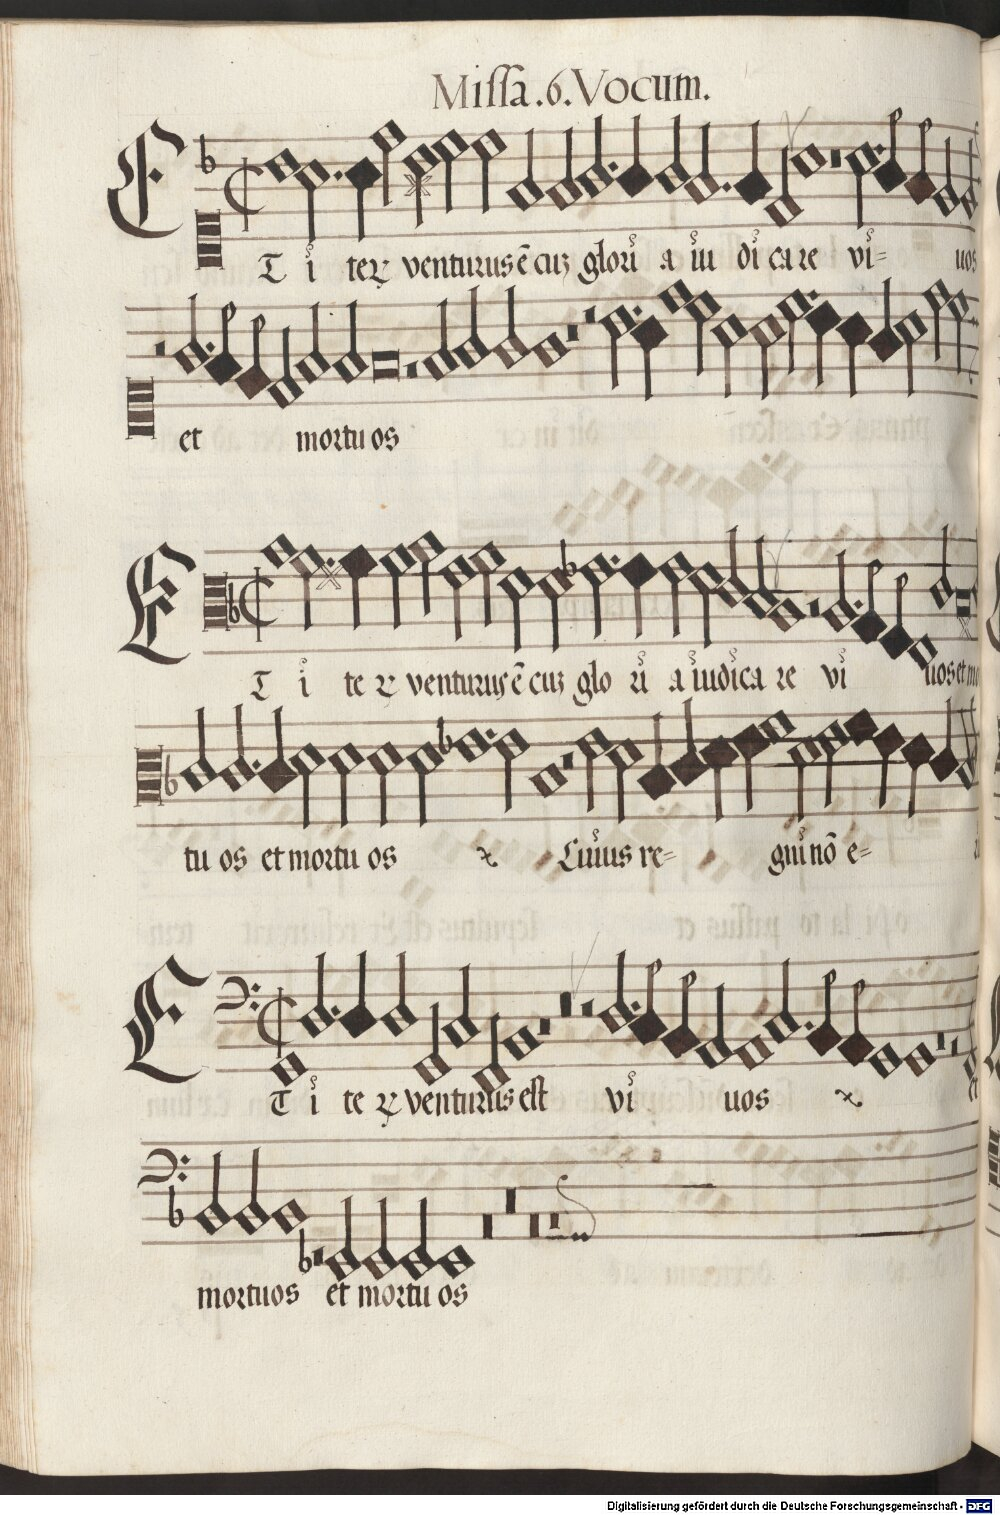 Missa .6. Vocum.
ET i teꝝ venturus ē cuȝ glori a iu di care vi= uos
et mortu os
ET i te ꝝ venturus ē cuȝ glo ri a iudica re vi uos et mo
tu os et mortu os ꝝ Cuius re= gni nō e=
ET i te ꝝ venturus est vi uos ꝝ et
mortuos et mortu os
Digitalisierung gefördert durch die Deutsche Forschungsgemeinschaft - DFG